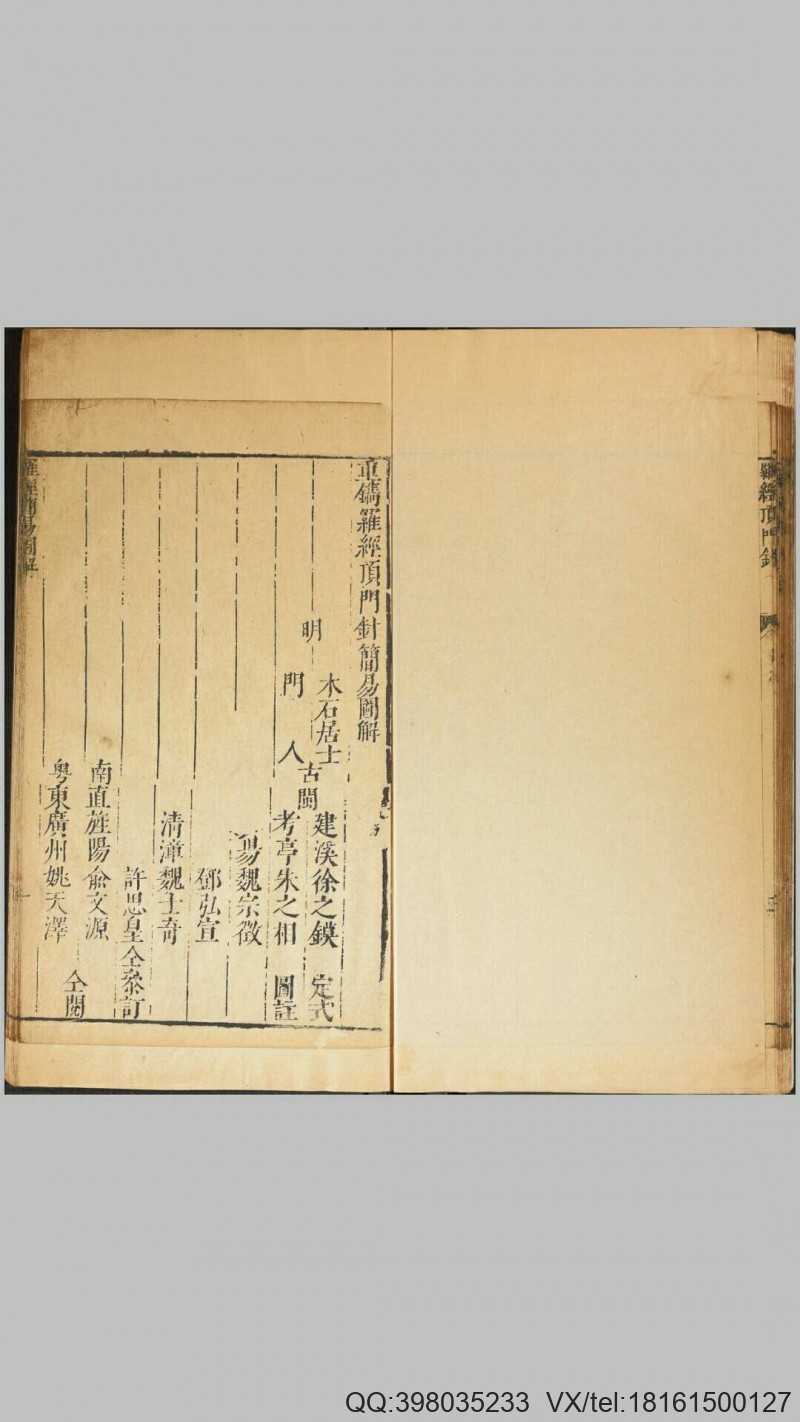 羅經頂門針
重鐫羅經頂門針簡易圖解
明
木石居士
古閩
建溪徐之鏌 定式
門人
考亭朱之相 圖註
魏宗徵
鄧弘宣
清漳魏士奇
許思皇仝叅訂
南直旌陽俞文源
粤東廣州姚天澤
仝閱
羅經簡易圖解
QQ:398035233 VX/tel:18161500127